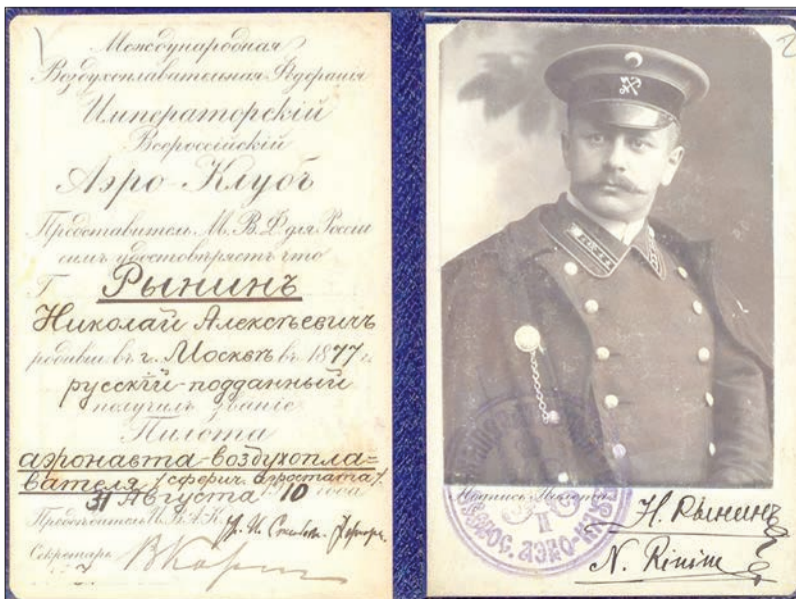 Международная
Воздухоплавательная Федерація
Императорскій
Всероссійскій
Аэро-Клубъ
Представитель М. В. Ф. для Россіи
симъ удостовѣряетъ что
Г Рынинъ
Николай Алексѣевичъ
родивш. въ г. Москвѣ въ 1877 г.
русскій-подданный
получилъ званіе
Пилота
аэронавта-воздухопла=
вателя /сферич. аэростата/
31 Августа 1910 года
Предсѣдатель И. В. А. К.
Секретарь
2
Подпись Пилота
II
Н. Рынинъ
N. Rinin